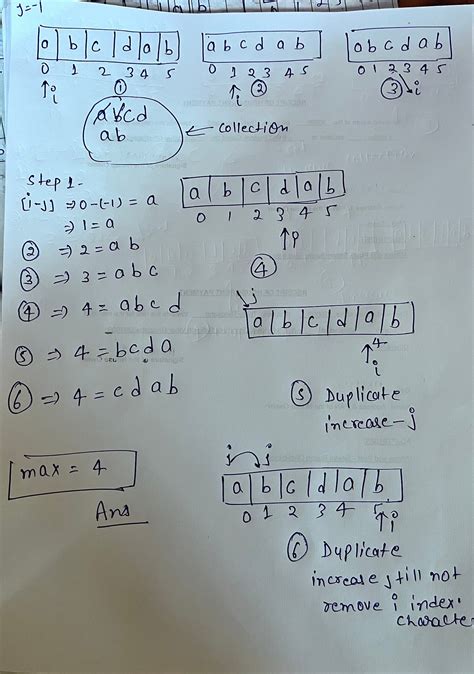 j=-1
a b c d a b
0 1 2 3 4 5
i
①
a b c d a b
0 1 2 3 4 5
i
②
a b c d a b
0 1 2 3 4 5
③ i
abcd
ab
collection
Step 1-
[i-j] ⇒ 0-(-1) = a
⇒ 1 = a
② ⇒ 2 = ab
③ ⇒ 3 = abc
④ ⇒ 4 = abcd
⑤ ⇒ 4 = bcda
⑥ ⇒ 4 = cdab
max = 4
Ans
a b c d a b
0 1 2 3 4 5
④
j
a b c d a b
4
i
⑤ Duplicate
increase-j
j j
a b c d a b
0 1 2 3 4 5
i
⑥ Duplicate
increase j till not
remove i index.
characte